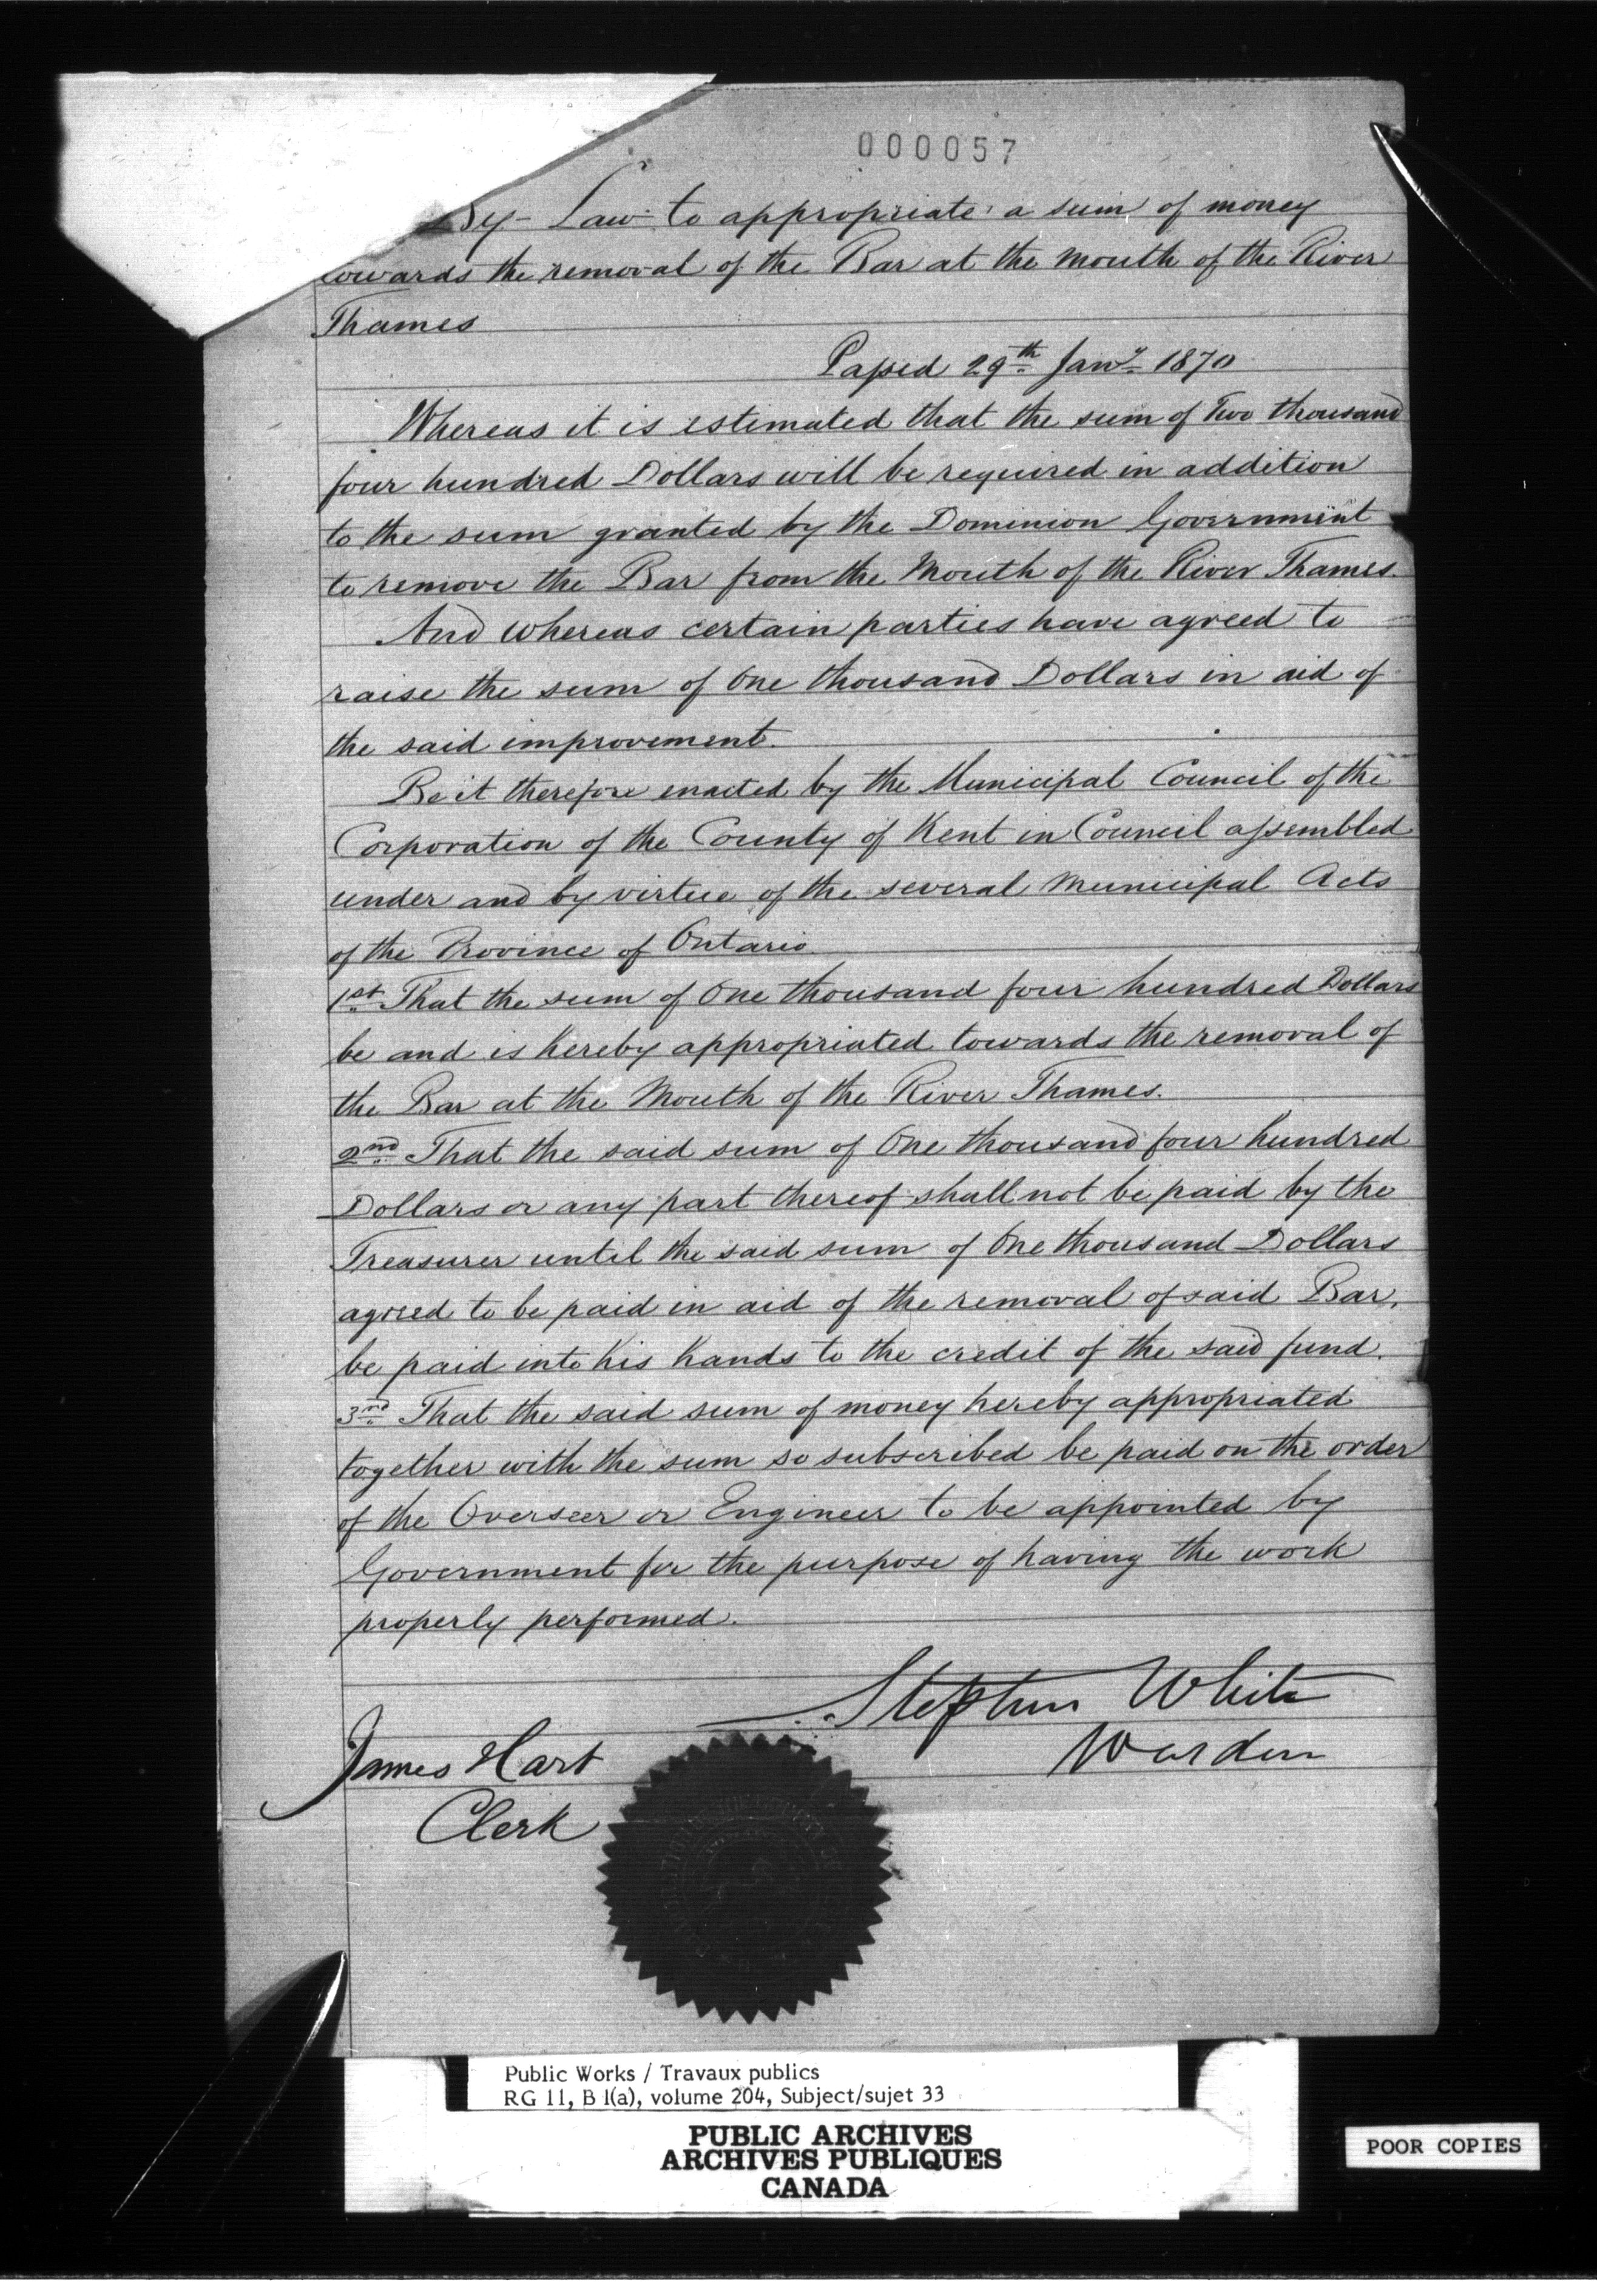 000057
By-Law to appropriate a sum of money
towards the removal of the Bar at the Mouth of the River
Thames
Passed 29th Jany 1870
Whereas it is estimated that the sum of Two thousand
four hundred Dollars will be required in addition
to the sum granted by the Dominion Government
to remove the Bar from the Mouth of the River Thames.
And whereas certain parties have agreed to
raise the sum of One thousand Dollars in aid of
the said improvement.
Be it therefore enacted by the Municipal Council of the
Corporation of the County of Kent in Council assembled
under and by virtue of the several Municipal Acts
of the Province of Ontario
1st That the sum of One thousand four hundred Dollars
be and is hereby appropriated towards the removal of
the Bar at the Mouth of the River Thames.
2nd That the said sum of One thousand four hundred
Dollars or any part thereof shall not be paid by the
Treasurer until the said sum of One thousand Dollars
agreed to be paid in aid of the removal of said Bar,
be paid into his hands to the credit of the said fund.
3rd That the said sum of money hereby appropriated
together with the sum so subscribed be paid on the order
of the Overseer or Engineer to be appointed by
Government for the purpose of having the work
properly performed.
Stephen White
Warden
James Hart
Clerk
Public Works / Travaux publics
RG 11, B 1(a), volume 204, Subject/sujet 33
PUBLIC ARCHIVES
ARCHIVES PUBLIQUES
CANADA
POOR COPIES